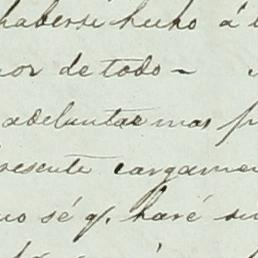 haberse hecho á
or de todo-
adelantae mas
resente cargame
no sé q. haré